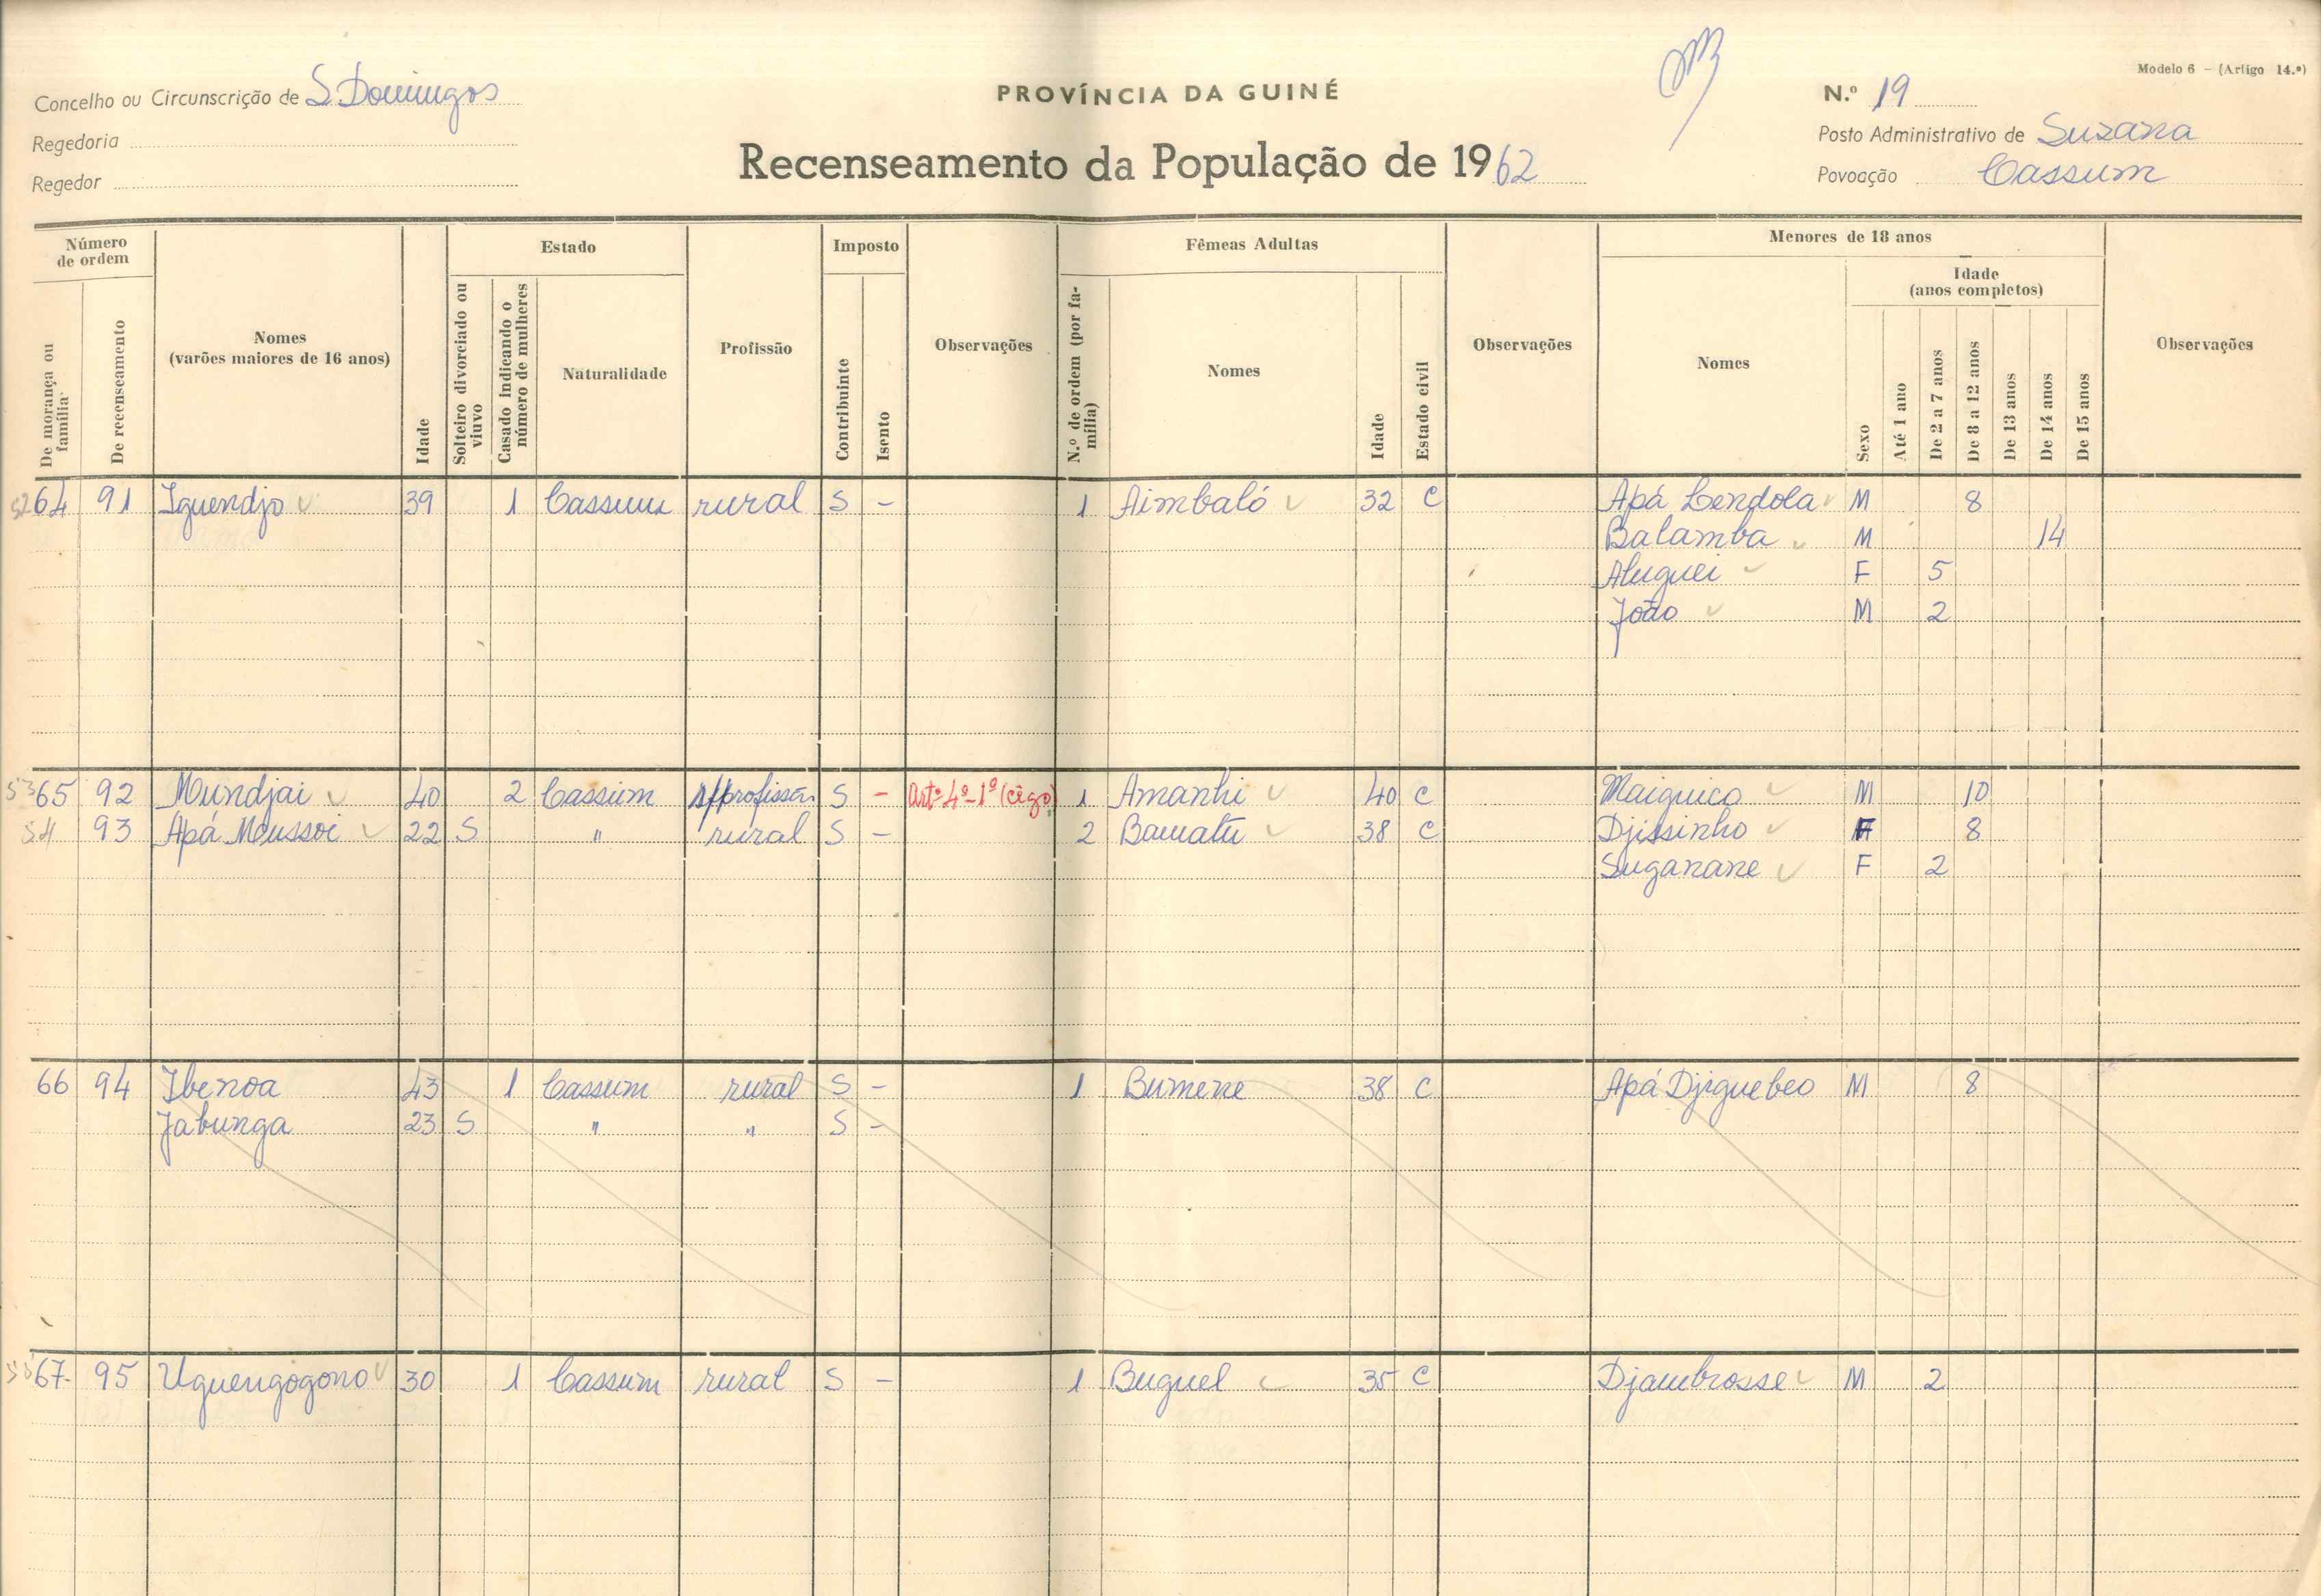 Modelo 6 – (Artigo 14.º)
Concelho ou Circunscrição de S. Domingos
PROVÍNCIA DA GUINÉ
N.º 19
Regedoria
Posto Administrativo de Suzana
Regedor
Recenseamento da População de 1962
Povoação Cassum
Número de ordem
De morança ou família
De recenseamento
Nomes
(varões maiores de 16 anos)
Idade
Estado
Solteiro divorciado ou viuvo
Casado indicando o número de mulheres
Naturalidade
Profissão
Imposto
Contribuinte
Isento
Observações
Fêmeas Adultas
N.º de ordem (por família)
Nomes
Idade
Estado civil
Observações
Menores de 18 anos
Nomes
Sexo
Idade
(anos completos)
Até 1 ano
De 2 a 7 anos
De 8 a 12 anos
De 13 anos
De 14 anos
De 15 anos
Observações
52 64 91 Iguendjo 39 1 Cassum rural S - 1 Aimbaló 32 C Apá Lendola M 8
Balamba M 14
Aluguei F 5
João M 2
53 65 92 Mundjai 40 2 Cassum s/profissão S - Artº 4º-1º (cêgo) 1 Amanhi 40 C Maiguico M 10
54 93 Apá Moussoi 22 S " rural S - 2 Bamatu 38 C Djissinho 8
Suganane F 2
66 94 Ibenoa 43 1 Cassum rural S - 1 Bumene 38 C Apá Djiguebeo M 8
Jabunga 23 S " " S -
67 95 Uguengogono 30 1 Cassum rural S - 1 Buguel 35 C Djambrosse M 2